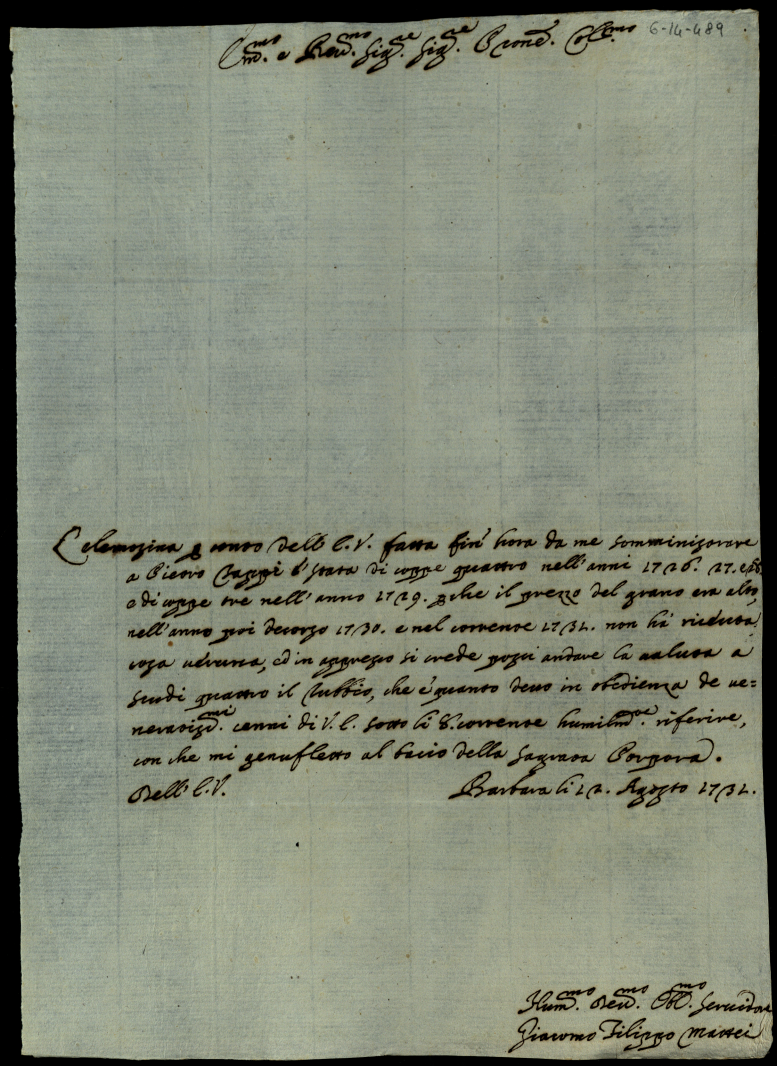 6-14-489
Em.mo e Rev.mo Sig.re Sig.re Prone. Col.mo
L'elemosina p conto dell'E.V. fatta fin' hora da me somministrare
a Pietro Zappi è stata di coppe quattro nell'anni 1726. 27. e 28.
e di coppe tre nell'anno 1729. pche il prezzo del grano era alto,
nell'anno poi decorso 1730. e nel corrente 1731. non há riceuta
cosa veruna, ed in appresso si crede possi andare la valuta a
scudi quattro il rubbio, che è quanto devo in obedienza de ve=
neratiss.mi cenni di V.E. sotto li 8. corrente humilm.te riferire,
con che mi genufletto al bacio della Sagrata Porpora.
Dell'E.V.
Barbara li 12. Agosto 1731.
Hum.mo Dev.mo Obl.mo Servidore
Giacomo Filippo Mattei